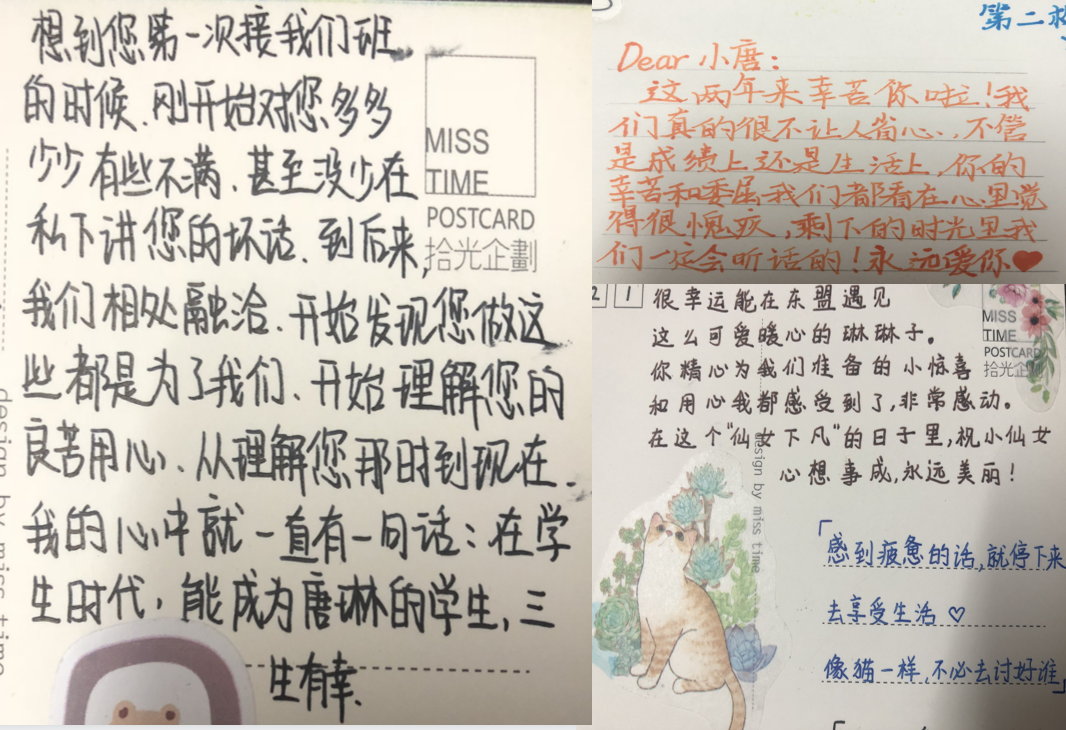 想到您第一次接我们班
的时候.刚开始对您多多
少少有些不满.甚至没少在
私下讲您的坏话.到后来,
我们相处融洽.开始发现您做这
些都是为了我们.开始理解您的
良苦用心.从理解您那时到现在.
我的心中就一直有一句话:在学
生时代,能成为唐琳的学生,三
生有幸.
MISS
TIME
POSTCARD
拾光企劃
design by miss time
第二
Dear 小唐:
这两年来幸苦你啦!我
们真的很不让人省心..不管
是成绩上还是生活上,你的
幸苦和委屈我们都看在心里觉
得很愧疚,剩下的时光里我
们一定会听话的!永远爱你
2 1
很幸运能在东盟遇见
这么可爱暖心的琳琳子。
你精心为我们准备的小惊喜
和用心我都感受到了,非常感动。
在这个"仙女下凡"的日子里,祝小仙女
心想事成,永远美丽!
MISS
TIME
POSTCARD
拾光企劃
design by miss time
「感到疲惫的话,就停下来
去享受生活♡
像猫一样,不必去讨好谁」